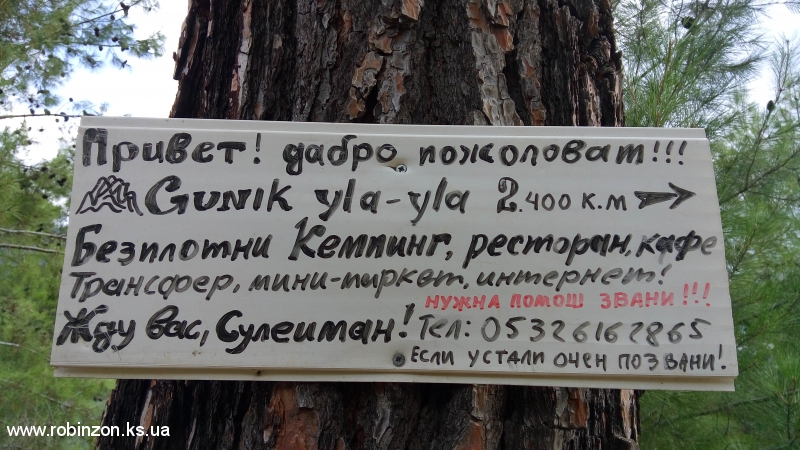 Привет! дабро пожоловат!!!
GUNIK yla-yla 2.400 к.м
Безплотни Кемпинг, ресторан, кафе
Трансфер, мини-маркет, интернет!
НУЖНА ПОМОШ ЗВАНИ!!!
Жду вас, Сулеиман! Тел: 05326162865
ЕСЛИ УСТАЛИ ОЧЕН ПОЗВАНИ!
www.robinzon.ks.ua